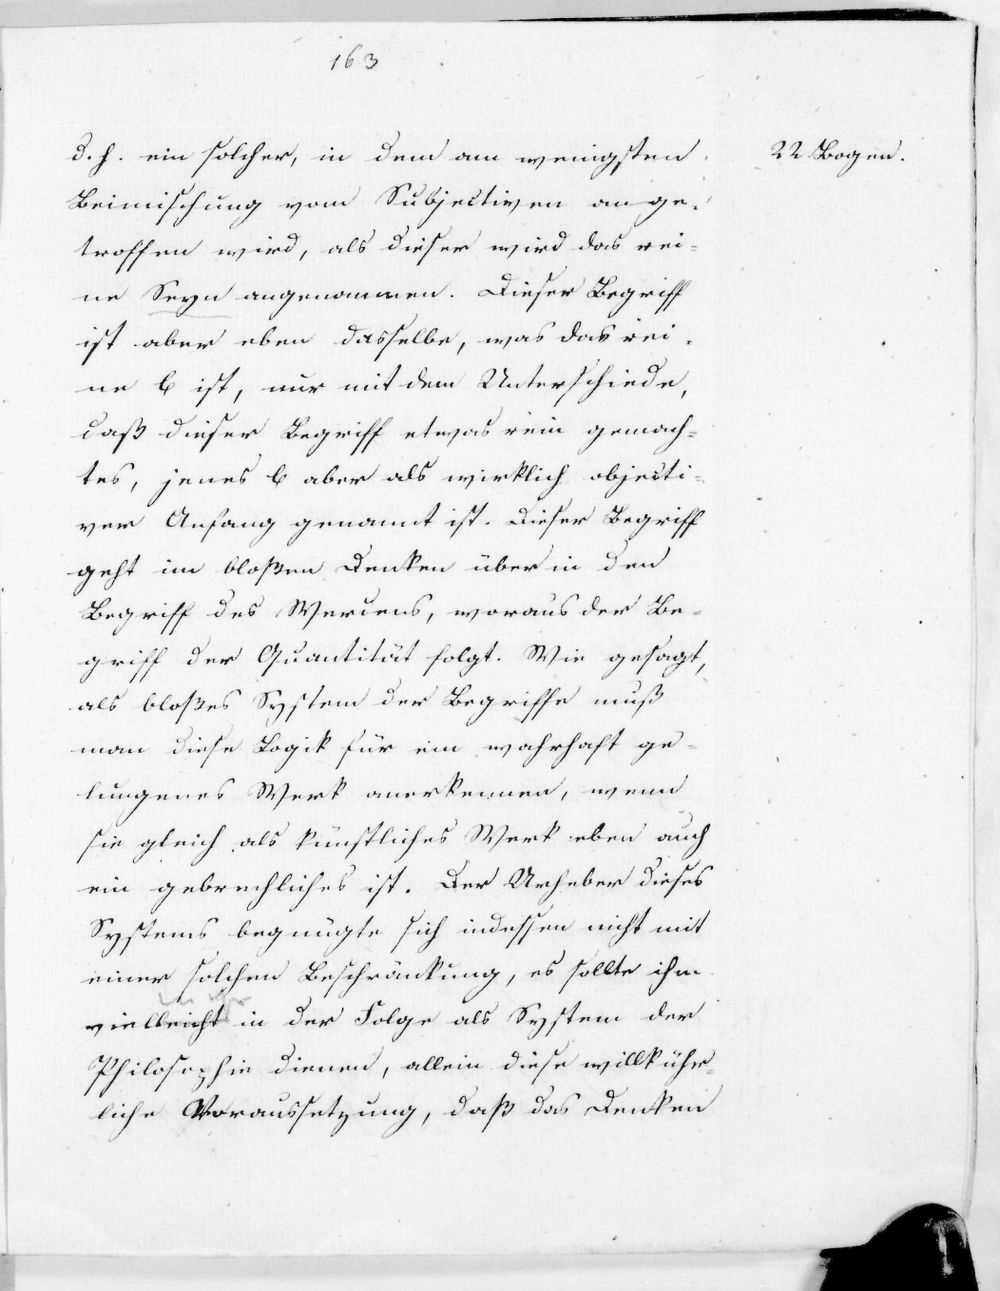 163
d. h. ein solcher, in dem am wenigsten
22 Bogen.
Beimischung vom Subjectiven ange-
troffen wird, als dieser wird das rei-
ne Seyn angenommen. Dieser Begriff
ist aber eben dasselbe, was das rei-
ne b ist, nur mit dem Unterschiede,
daß dieser Begriff etwas rein gemach-
tes, jenes b aber als wirklich objecti-
ver Anfang genannt ist. Dieser Begriff
geht im bloßen Denken über in den
Begriff des Werdens, woraus der Be-
griff der Quantität folgt. Wie gesagt,
als bloßes System der Begriffe muß
man diese Logik für ein wahrhaft ge-
lungenes Werk anerkennen, wenn
sie gleich als künstliches Werk eben auch
ein gebrechliches ist. Der Urheber dieses
Systems begnügte sich indessen nicht mit
einer solchen Beschränkung, es sollte ihm
vielleicht in der Folge als System der
Philosophie dienen, allein diese willkühr-
liche Voraussetzung, daß das Denken